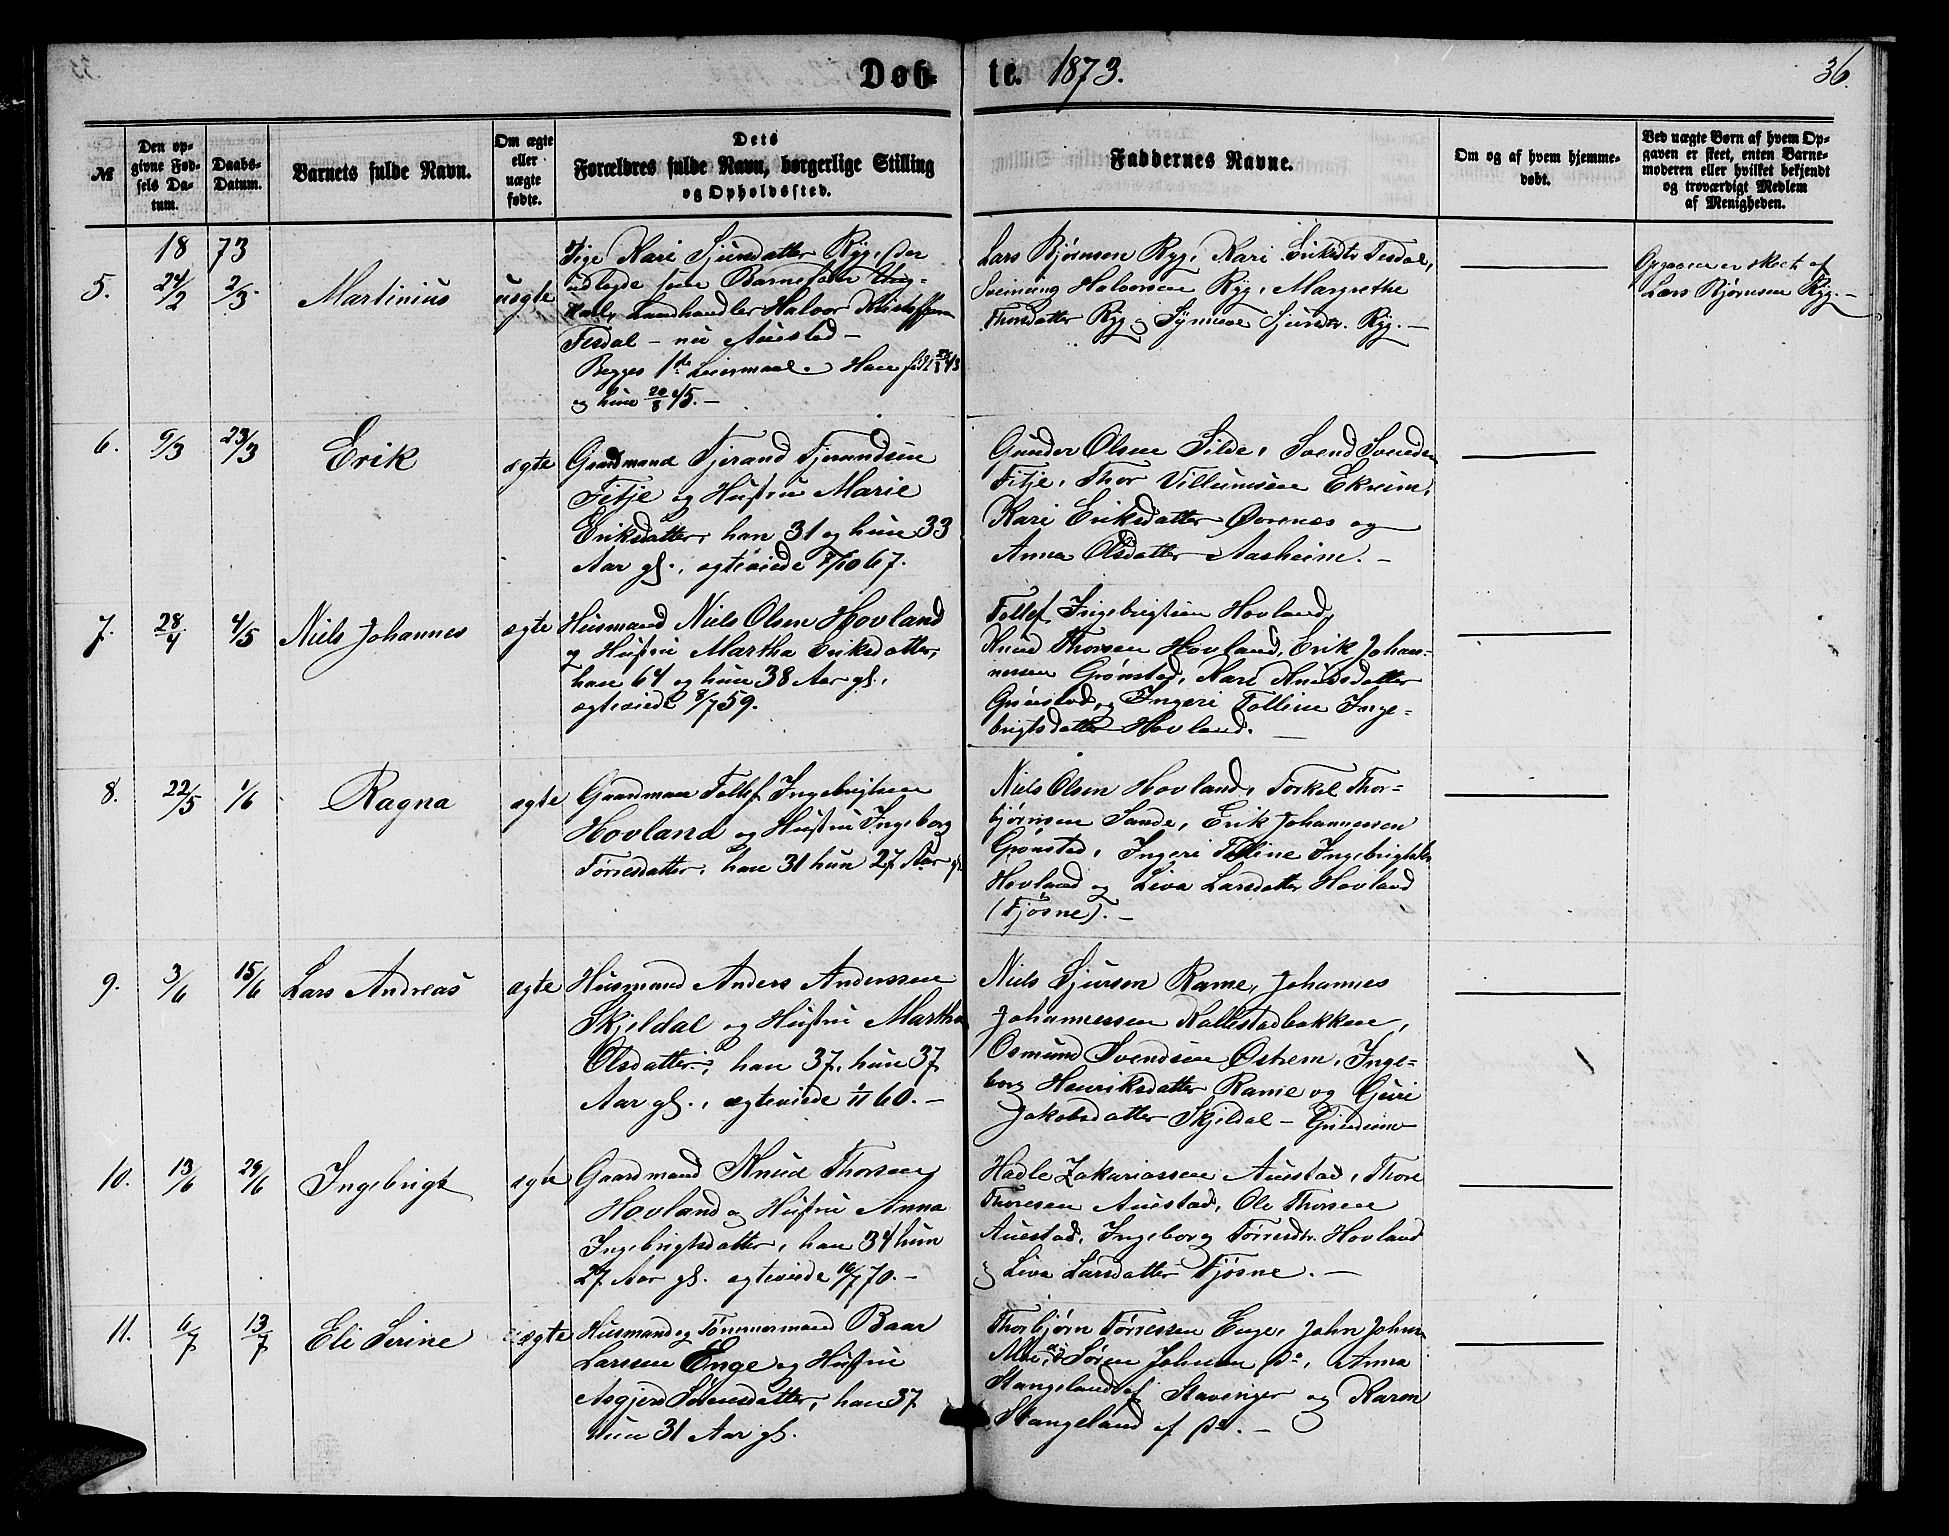 Døb-
te. 1873.
36.
№
Den op-
givne Fød-
sels Da-
tum.
Daabs-
Datum.
Barnets fulde Navn.
Om ægte
eller
uægte
fødte.
Dets
Forældres fulde Navn, borgerlige Stilling
og Opholdssted.
Faddernes Navne.
Om og af hvem hjemme-
døbt.
Ved uægte Børn af hvem Op-
gaven er skeet, enten Barne-
moderen eller hvilket bekjendt
og troværdigt Medlem
af Menigheden.
18 73
5. 24/2 2/3 Martinius uægte
Pige Kari Sjursdatter Ryg, der
udlagde som Barnefader Ung-
karl, Landhandler Halvor Kristoffersen
Tesdal – nu Auestad –
Begges 1ste Leiermaal. Han født
og hun 20/8 45. –
Lars Bjørnsen Ryg, Kari Eriksdtr Tesdal,
Sveinung Halvorsen Ryg, Margrethe
Thorsdatter Ryg og Synneve Sjursdtr. Ryg. –
Opgaven er skeet af
Lars Bjørnsen Ryg. –
6. 9/3 23/3 Erik ægte
Gaardmand Tjerand Tjerandsen
Fitje og Hustru Marie
Eriksdatter, han 31 og hun 33
Aar gl., ægteviede 8/10 67.
Gunder Olsen Silde, Svend Svendsen
Fitje, Thor Villumsen Ekreim,
Kari Eriksdatter Øvrenes og
Anna Olsdatter Aasheim. –
7. 28/4 4/5 Niels Johannes ægte
Husmand Niels Olsen Hovland
og Hustru Martha Eriksdatter,
han 64 og hun 38 Aar gl.,
ægteviede 8/7 59.
Tollef Ingebrigtsen Hovland,
Knud Thorsen Hovland, Erik Johan-
nessen Grønstad, Kari Knudsdatter
Grønstad, og Ingeri Tolline Inge-
brigtsdatter Hovland. –
8. 22/5 1/6 Ragna ægte
Gaardman Tollef Ingebrigtsen
Hovland og Hustru Ingeborg
Tørresdatter, han 31 hun 27 Aar gl.
Niels Olsen Hovland, Torkel Thor-
bjørnsen Sande, Erik Johannessen
Grønstad, Ingeri Tolline Ingebrigtsdtr
Hovland og Liva Larsdatter Hovland
(Fjøsne). –
9. 3/6 15/6 Lars Andreas ægte
Husmand Anders Anderssen
Skjeldal og Hustru Martha
Olsdatter, han 37, hun 37
Aar gl., ægteviede 1/11 60. –
Niels Sjursen Rame, Johannes
Johannessen Kallestadbakken,
Osmund Svendsen Østrem, Inge-
borg Henriksdatter Rame og Guri
Jakobsdatter Skjeldal –
10. 13/6 29/6 Ingebrigt ægte
Gaardmand Knud Thorsen
Hovland og Hustru Anna
Ingebrigtsdatter, han 34 hun
27 Aar gl. ægteviede 10/7 70. –
Hadle Zakariassen Auestad, Thore
Thoresen Auestad, Ole Thorsen
Auestad, Ingeborg Tørresdtr. Hovland
og Liva Larsdatter Fjøsne. –
11. 6/7 13/7 Eli Serine ægte
Husmand og Tømmermand Baar
Larssen Enge og Hustru
Asgjerd Sørensdatter, han 37
hun 31 Aar gl.
Thorbjørn Tørressen Enge, John Johns.
Moe, og Søren Johnsen do, Anna
Stangeland af Stavanger og Karen
Stangeland af do. –